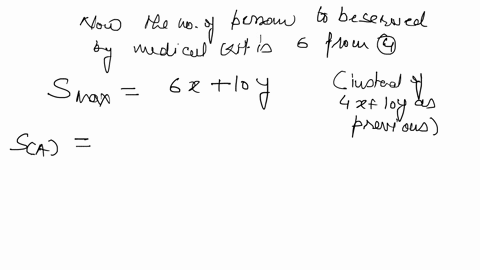 Now the no. of person to be served
by medical cart is 6 from ④
Smax = 6x + 10y
(instead of
4x + 10y as
previous)
S(A) =